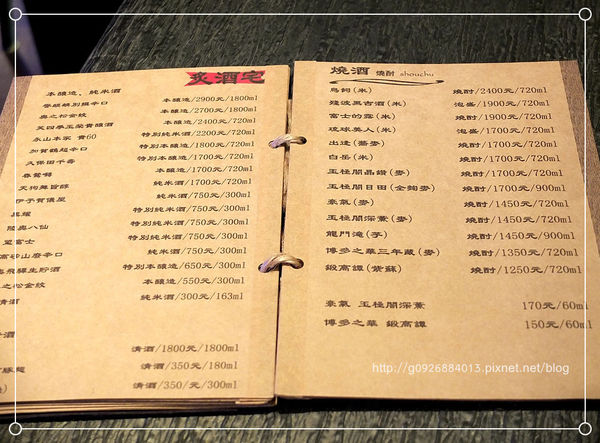 炙酒宅
本釀造、純米酒
譽麒麟別撰辛口 本釀造/2900元/1800ml
奧之松金紋 本釀造/2700元/1800ml
本釀造/2400元/720ml
永山本家 貴60 特別純米酒/2200元/720ml
加賀鶴超辛口 特別本釀造/1800元/720ml
久保田千壽 特別本釀造/1700元/720ml
春鶯囀 本釀造/1700元/720ml
天狗舞旨醇 純米酒/1700元/720ml
伊予賀儀屋 純米酒/750元/300ml
特別純米酒/750元/300ml
陸奧八仙 特別純米酒/750元/300ml
富士 純米酒/750元/300ml
砂山廢辛口 特別本釀造/650元/300ml
飛驒生貯酒 本釀造/550元/300ml
之松金紋 純米酒/300元/163ml
清酒
清酒
清酒/1800元/1800ml
清酒/350元/180ml
清酒/350/元/300ml
燒酒 燒酎 shouchu
鳥飼(米) 燒酎/2400元/720ml
殘波黑古酒(米) 泡盛/1900元/720ml
富士的露(米) 燒酎/1700元/720ml
琉球美人(米) 泡盛/1700元/720ml
出逢(蕎麥) 燒酎/1700元/720ml
白岳(米) 燒酎/1700元/720ml
玉極閣晶鑽(麥) 燒酎/1700元/720ml
玉極閣日田(全麴麥) 燒酎/1700元/900ml
豪氣(麥) 燒酎/1450元/720ml
玉極閣深薰(麥) 燒酎/1450元/720ml
龍門滝(芋) 燒酎/1450元/900ml
博多之華三年藏(麥) 燒酎/1350元/720ml
鍛高譚(紫蘇) 燒酎/1250元/720ml
豪氣 玉極閣深薰 170元/60ml
博多之華 鍛高譚 150元/60ml
http://g0926884013.pixnet.net/blog